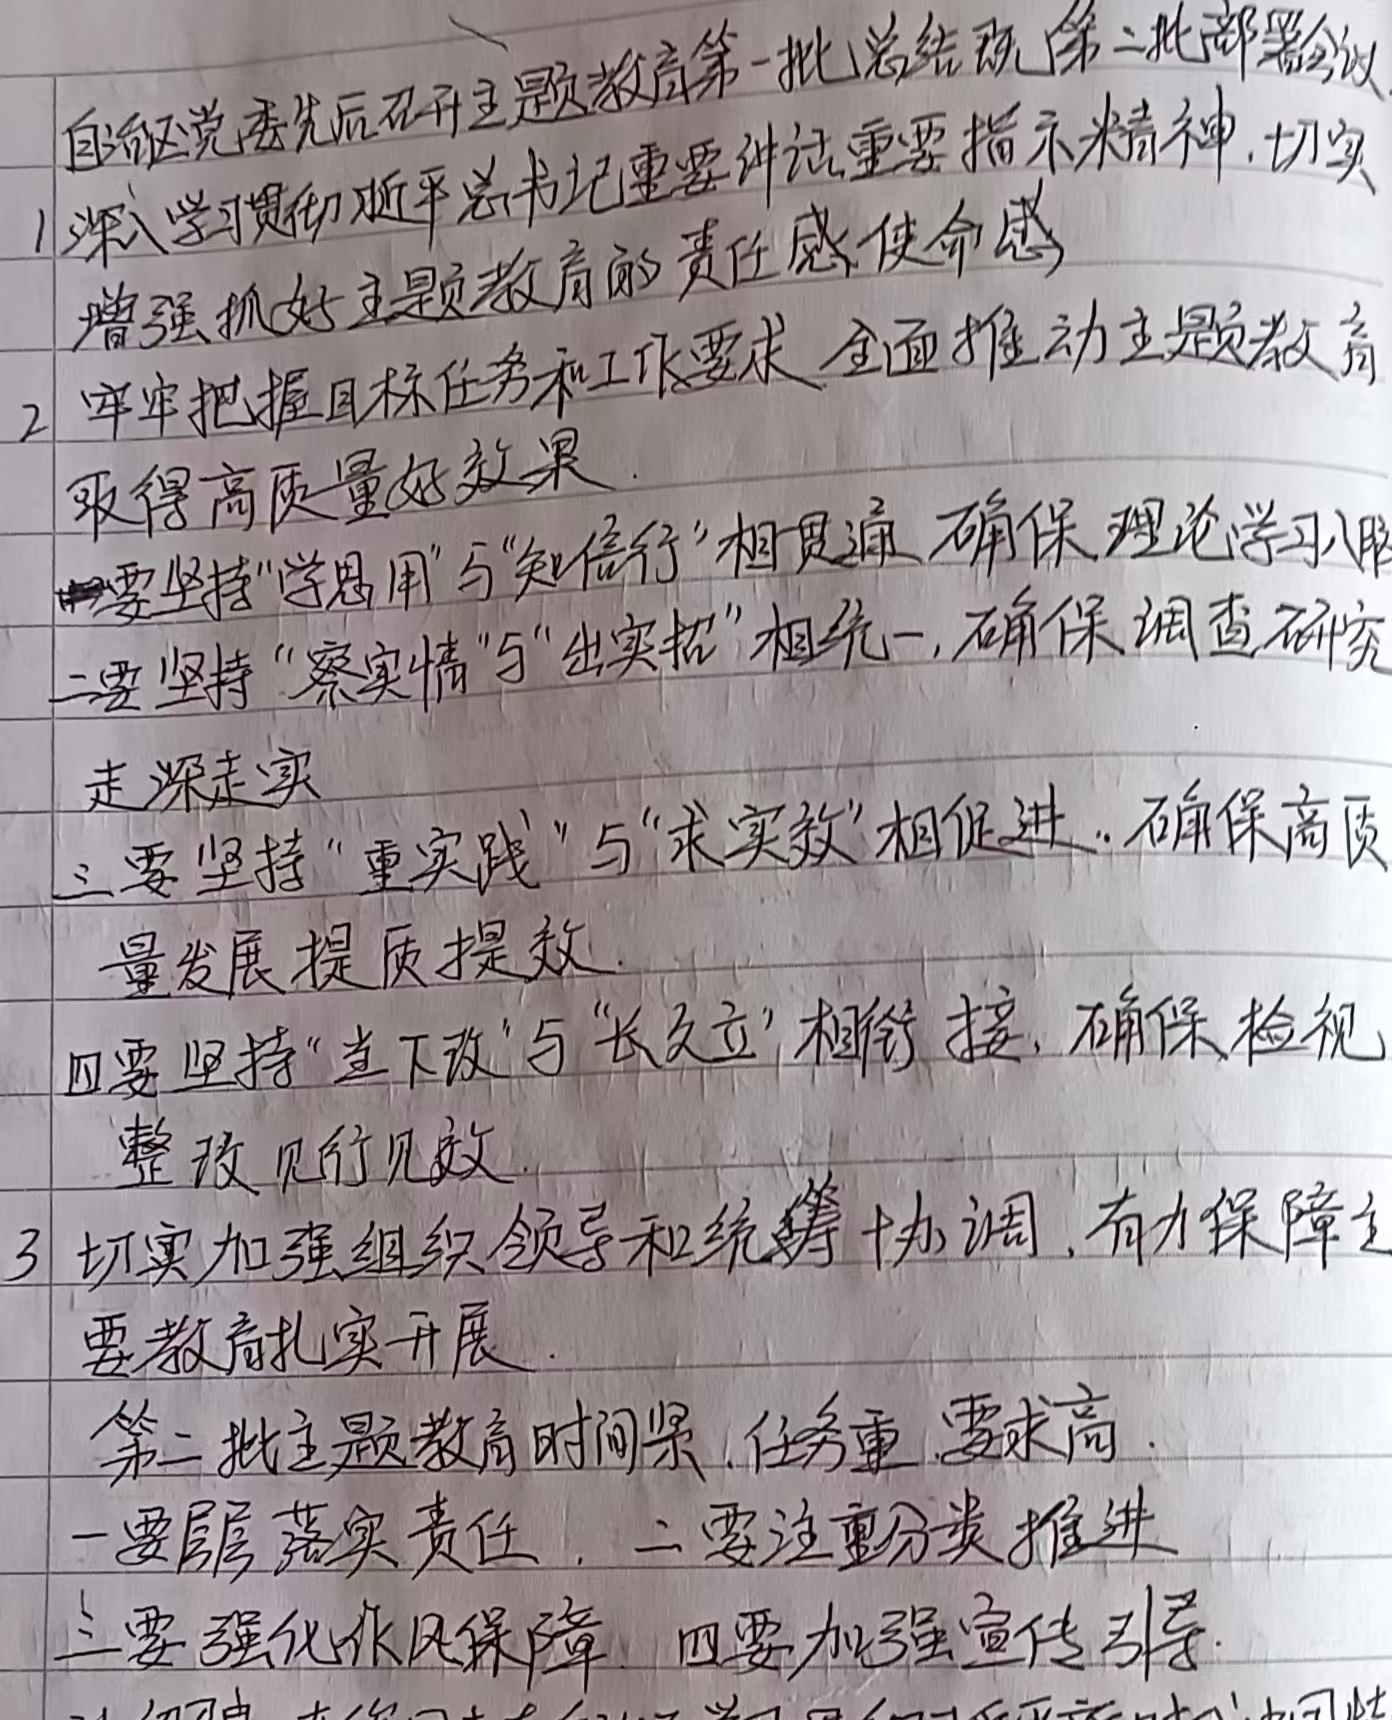 自治区党委先后召开主题教育第一批总结既第二批部署会议
1 深入学习贯彻习近平总书记重要讲话重要指示精神,切实
增强抓好主题教育的责任感使命感
2 牢牢把握目标任务和工作要求 全面推动主题教育
取得高质量好效果.
一要坚持“学思用”与“知信行”相贯通 确保理论学习入脑
二要坚持“察实情”与“出实招”相统一,确保调查研究
走深走实
三要坚持“重实践”与“求实效”相促进..确保高质
量发展提质提效.
四要坚持“当下改”与“长久立”相衔接,确保检视
整改见行见效.
3 切实加强组织领导和统筹协调,有力保障主
要教育扎实开展.
第二批主题教育时间紧,任务重,要求高.
一要层层落实责任,二要注重分类推进
三要强化作风保障.四要加强宣传引导.